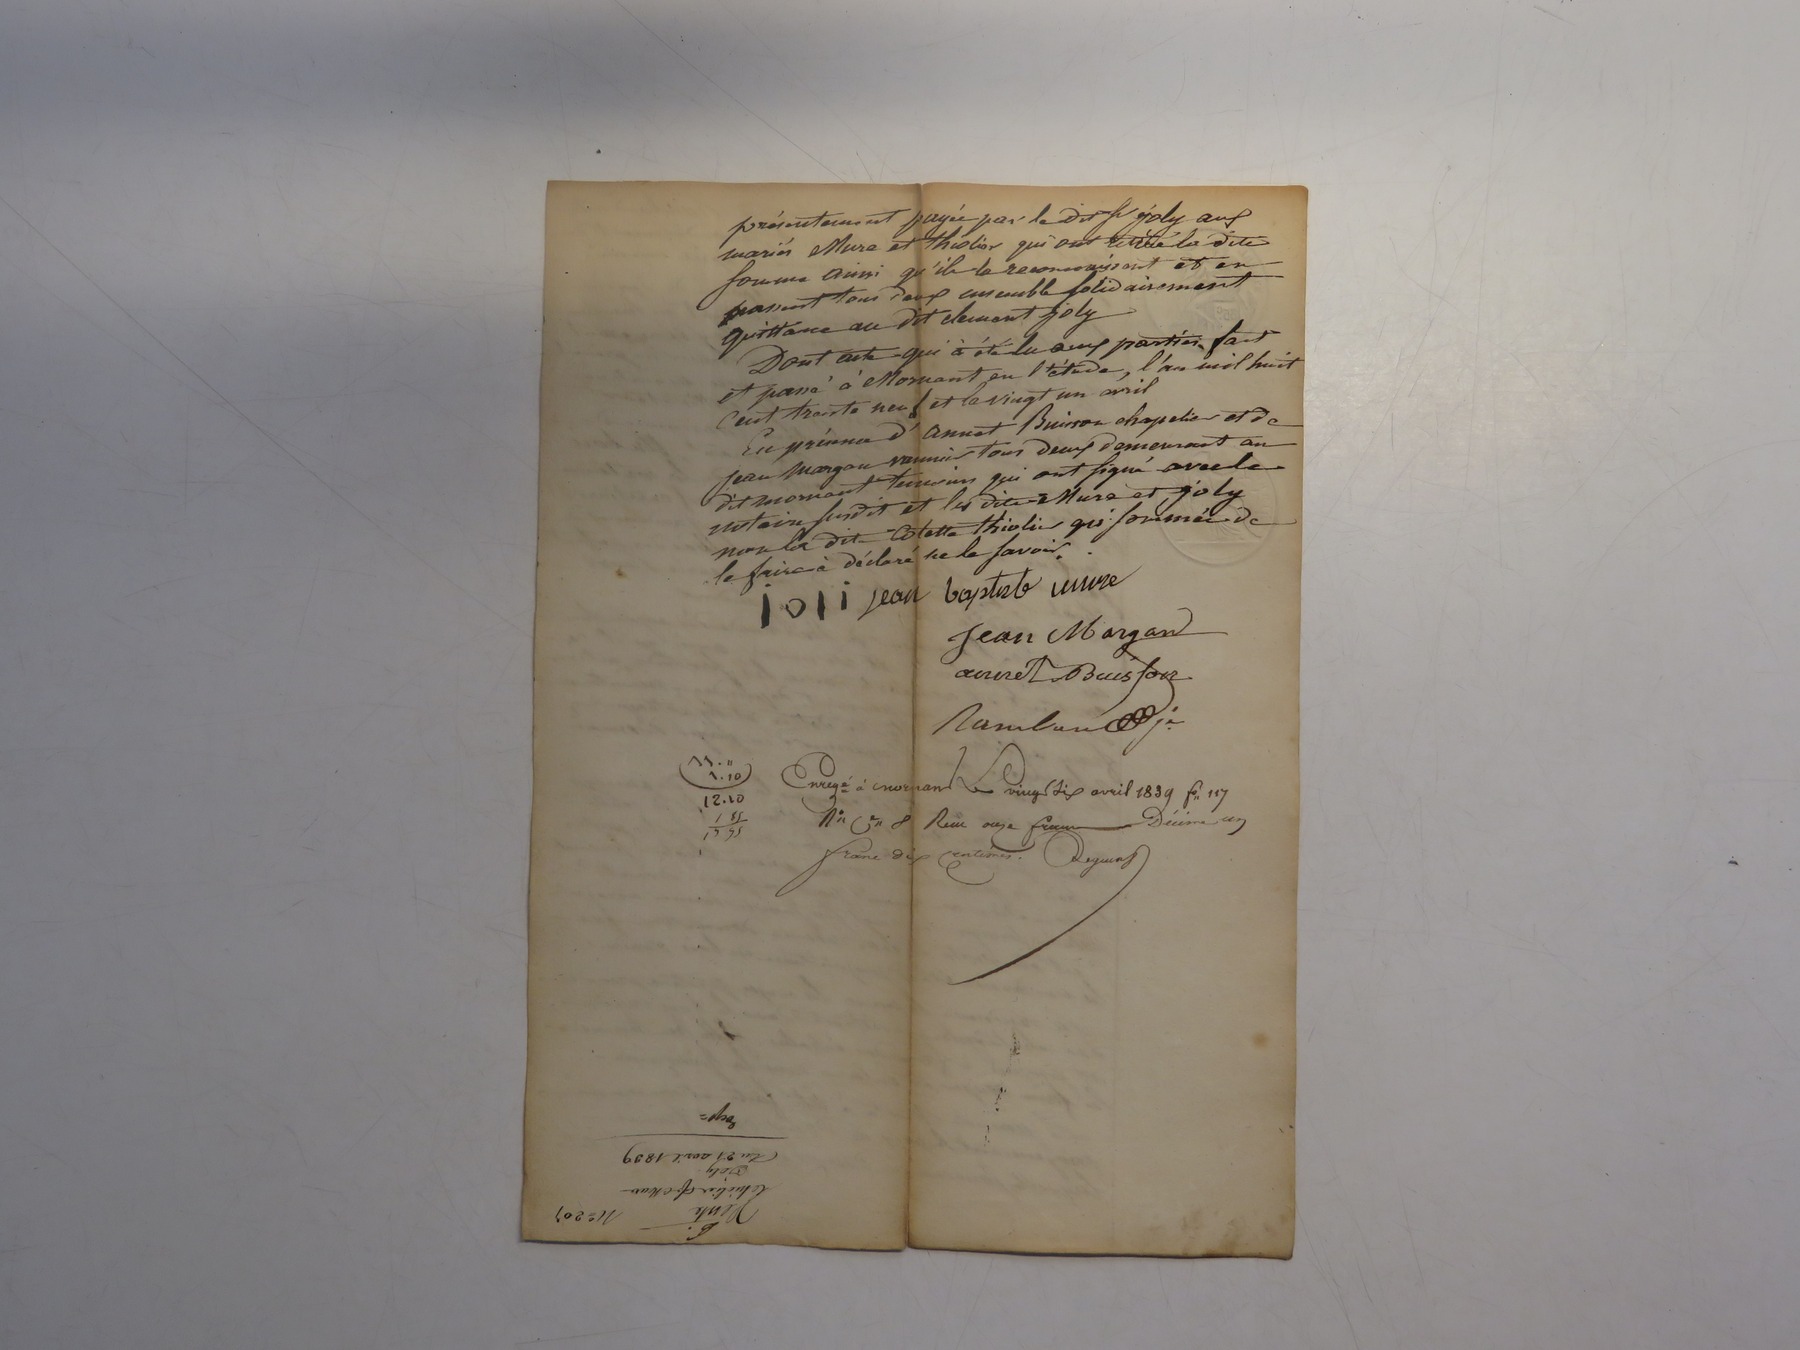 présentement payée par le dit Sr joly aux
mariés Mure et thiolier qui ont retiré la dite
somme ainsi qu'ils le reconnaissent et en
passent tous deux ensemble solidairement
quittance au dit clement joly
Dont acte qui à été lu aux parties fait
et passé à Mornant en l'étude, l'an mil huit
cent trente neuf et le vingt un avril
En présence d'annet Buisson chapelier et de
jean margan vannier tous deux demeurant au
dit mornant temoins qui ont signé avec le
notaire susdit et les dits Mure et joly
non la dite Colette thiolier qui sommée de
le faire à déclaré ne le savoir.
ioli jean baptiste mure
Jean Margand
annet Buisson
Rambaud je
11."
1.10
12.10
Enregé à mornant Le vingt six avril 1839 fo 117
Ro Ce 8 Reçu onze francs Décime un
franc dix centimes.
No 207
Vente
thiolier fe Mure
Joly
Du 21 avril 1839
Exp=